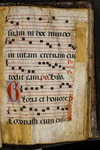 suam in hoc mundo
in vitam eternam cus
todit eam
Gloria et honore
Coronasti eum